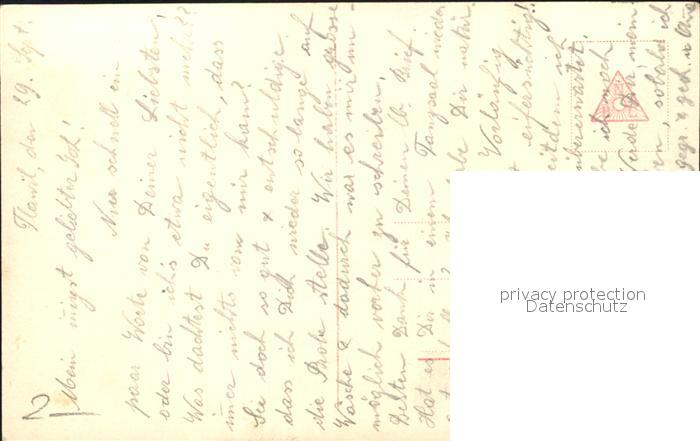 Flawil, den 29. Sept.
Mein innigst geliebter Joh!
Nur schnell ein
paar Worte von Deiner Liebsten!
oder bin ich's etwa nicht mehr??
Was dachtest Du eigentlich, dass
imer nichts von mir kam?
Sei doch so gut & entschuldige
dass ich Dich wieder so lange auf
die Probe stelle. Wir haben grosse
Wäsche & dadurch war es mir un-
möglich vorher zu schreiben.
Besten Dank für Deinen lb. Brief.
Hat es Dir in einem Tanzsaal wieder
be Dir natür
Vorläufig
eifersüchtig!
seitdem ich
überrascht
be ich noch
Werde Dir, mein
en, sobald ich
2
privacy protection
Datenschutz